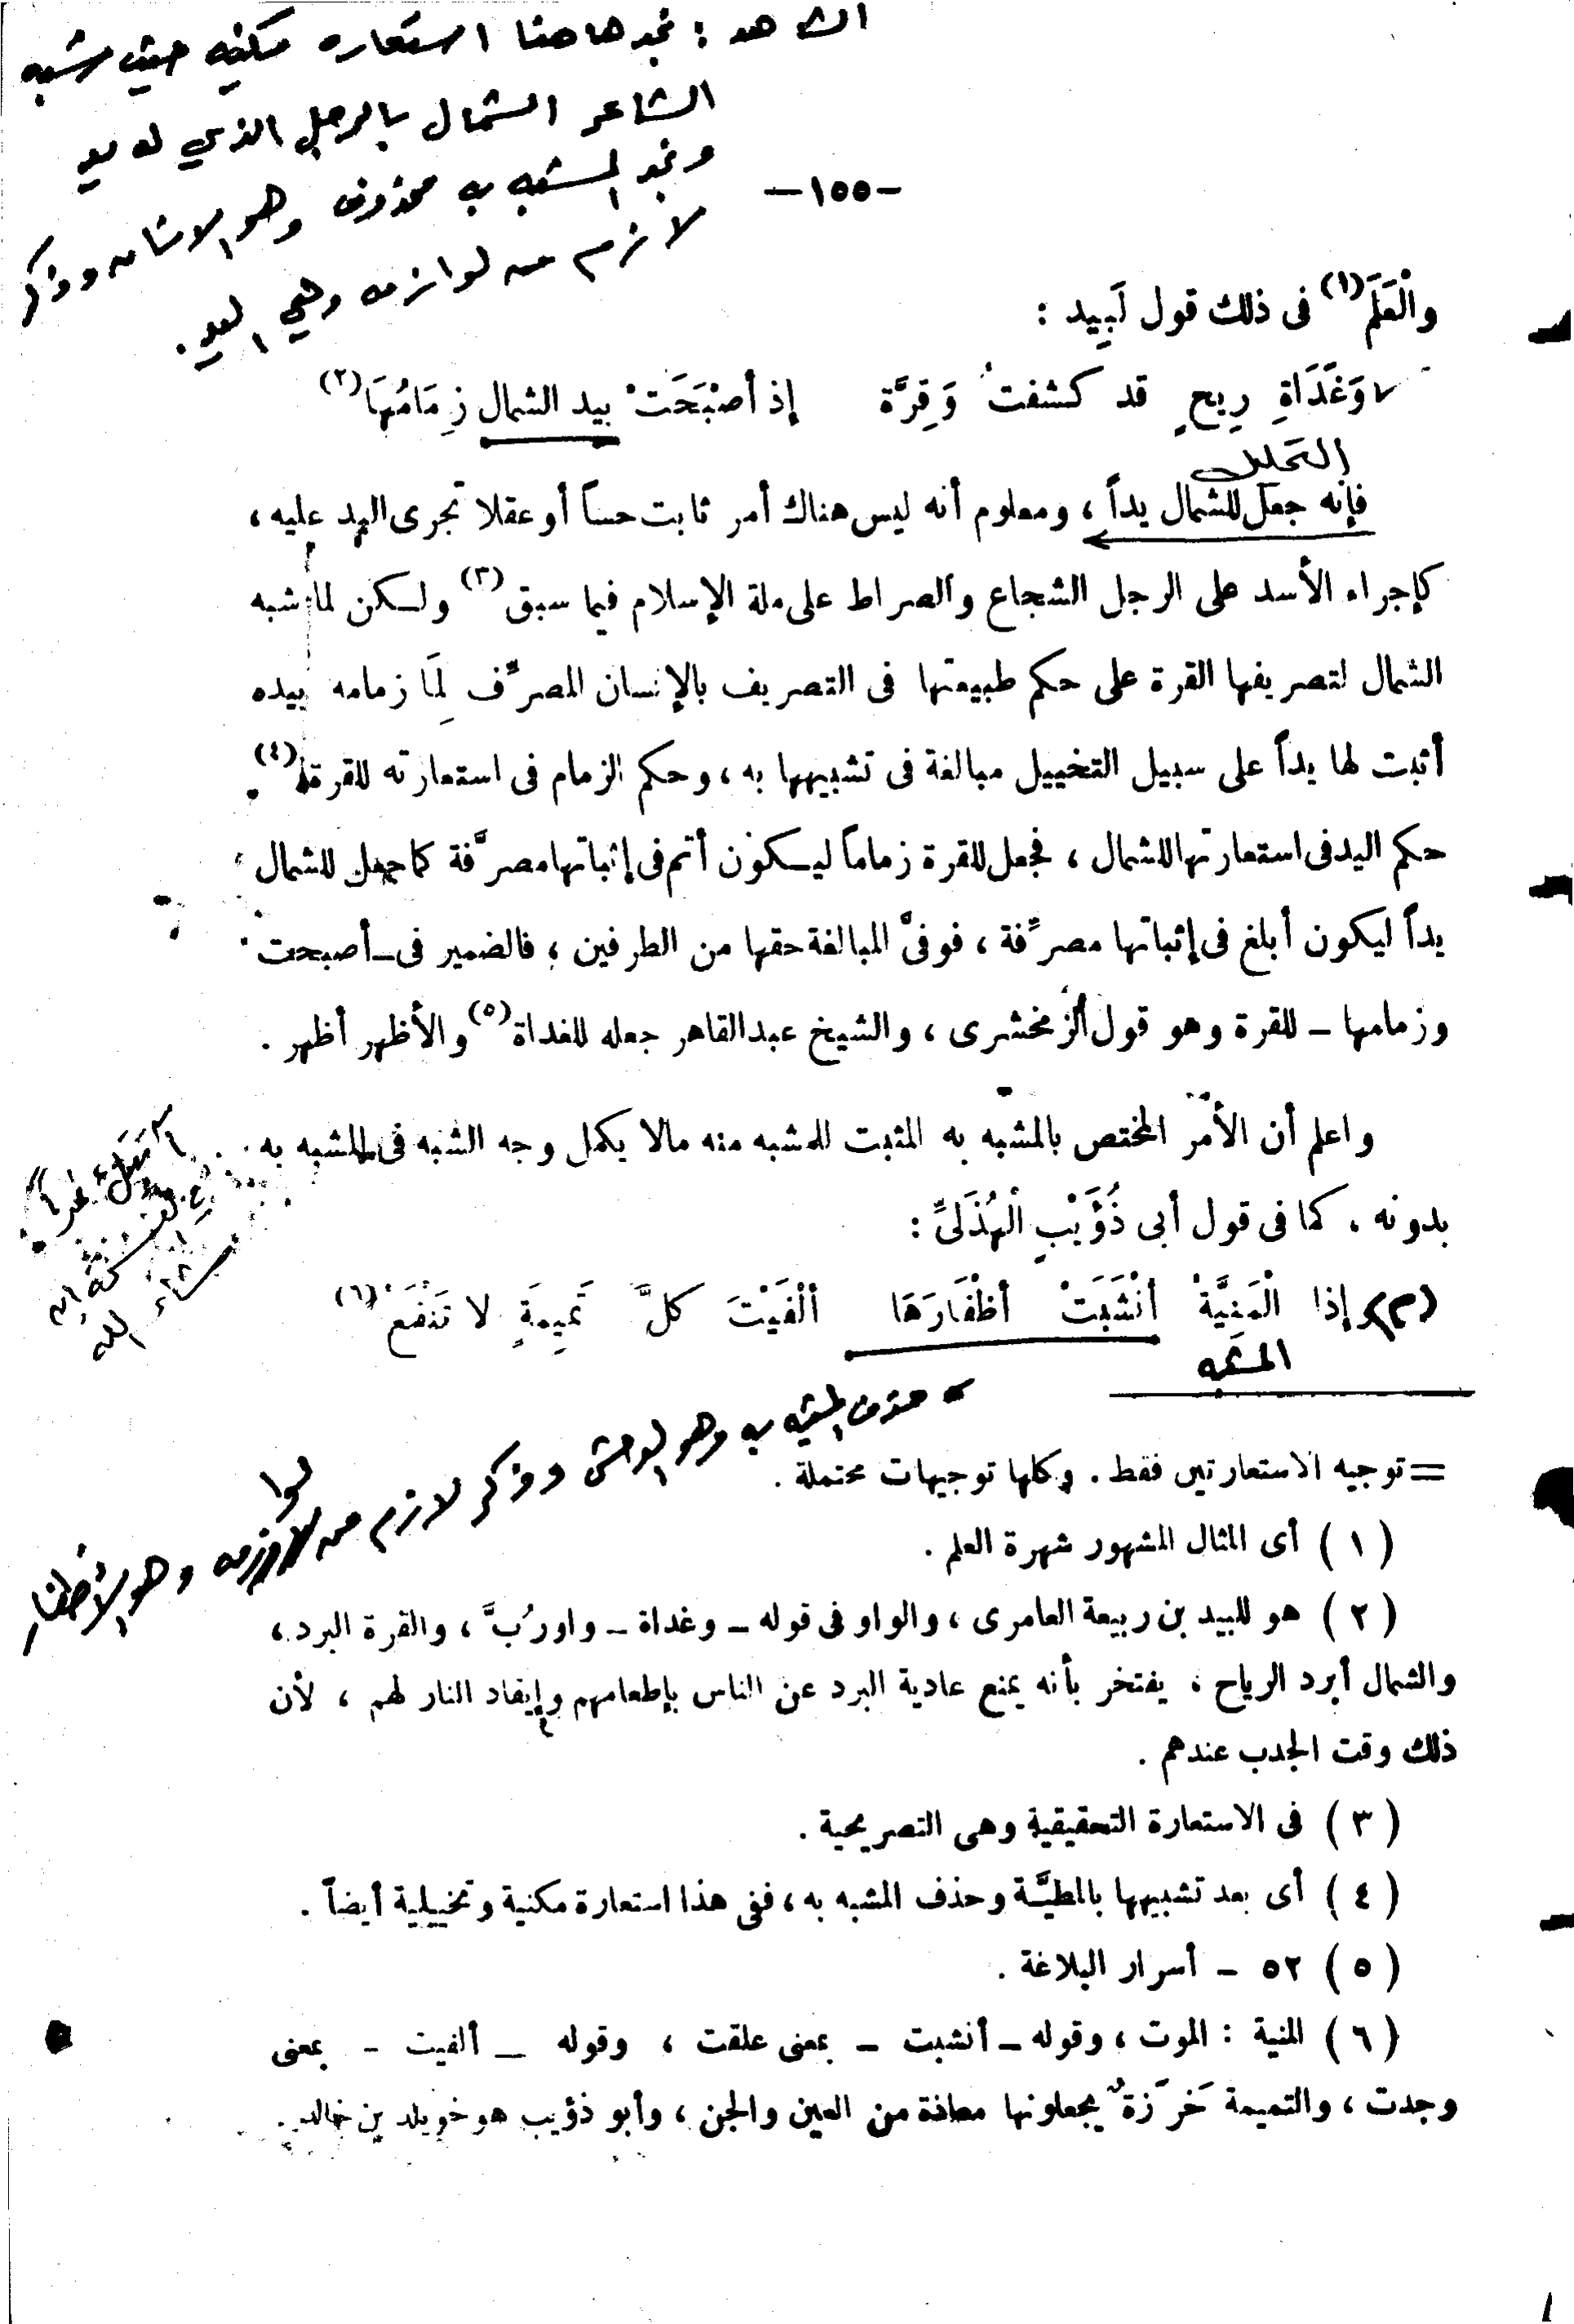 الشاهد : نجد هاهنا استعاره مكنيه حيث شبه
الشاعر الشمال بالرجل الذي له يد
ونجد المشبه به محذوف وهو الانسان وذكر
لازم من لوازمه وهي اليد .
—١٥٥—
والْعَلَمَ(١) فى ذلك قول لَبِيد :
وَغَدَاةِ رِيحٍ قد كشفتُ وَقِرَّة إذ أصْبَحَتْ بيد الشمال زِمَامُهَا(٢)
التحليل
فإنه جعل للشمال يداً ، ومعلوم أنه ليس هناك أمر ثابت حساً أو عقلا تجرى اليد عليه ،
كإجراء الأسد على الرجل الشجاع والصراط على ملة الإسلام فيما سبق(٣) ولكن لما شبه
الشمال لتصريفها القرة على حكم طبيعتها فى التصريف بالإنسان المصرِّف لِمَا زمامه بيده
أثبت لها يداً على سبيل التخييل مبالغة فى تشبيهها به ، وحكم الزمام فى استعارته للقرة(٤)
حكم اليد فى استعارتها للشمال ، فجعل للقرة زماماً ليكون أتم فى إثباتها مصرَّفة كما جعل للشمال
يداً ليكون أبلغ فى إثباتها مصرِّفة ، فوفىَّ المبالغة حقها من الطرفين ، فالضمير فى ــ أصبحت
وزمامها ــ للقرة وهو قول الزمخشرى ، والشيخ عبد القاهر جعله للغداة(٥) والأظهر أظهر .
واعلم أن الأمر المختص بالمشبه به المثبت للمشبه منه مالا يكمل وجه الشبه فى المشبه به
بدونه ، كما فى قول أبى ذُؤَيْبٍ الْهُذَلىِّ :
(٢) إذا الْمَنِيَّةُ أنْشَبَتْ أظْفَارَهَا ألْفَيْتَ كلَّ تَمِيمَةٍ لا تَنْفَعُ(٦)
المشبه
حذف المشبه به وهو الوحش وذكر لازم من لوازمه وهو الأظفار
= توجيه الاستعارتين فقط . وكلها توجيهات محتملة .
(١) أى المثال المشهور شهرة العلم .
(٢) هو للبيد بن ربيعة العامرى ، والواو فى قوله ــ وغداة ــ واو رُبَّ ، والقرة البرد ،
والشمال أبرد الرياح ، يفتخر بأنه يمنع عادية البرد عن الناس بإطعامهم وإيقاد النار لهم ، لأن
ذلك وقت الجدب عندهم .
(٣) فى الاستعارة التحقيقية وهى التصريحية .
(٤) أى بعد تشبيهها بالمطيَّة وحذف المشبه به ، ففى هذا استعارة مكنية وتخييلية أيضاً .
(٥) ٥٢ ــ أسرار البلاغة .
(٦) المنية : الموت ، وقوله ــ أنشبت ــ بمعنى علقت ، وقوله ــ ألفيت ــ بمعنى
وجدت ، والتميمة خَرَزةٌ يجعلونها معاذة من العين والجن ، وأبو ذؤيب هو خويلد بن خالد .